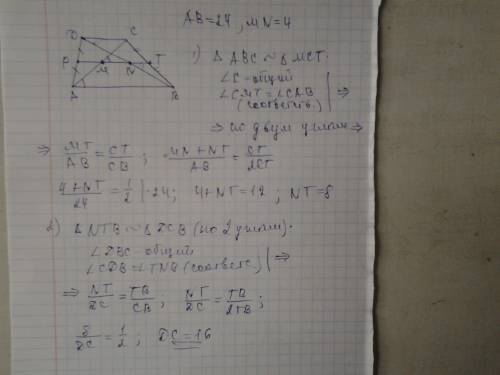 AB=24, MN=4
D C
P M N T
A B
1) Δ ABC ~ Δ MCT.
∠C - общий
∠CMT = ∠CAB (соответств.) | ⇒
⇒ по двум углам ⇒
⇒ MT/AB = CT/CB ; MN+NT/AB = CT/2CT
4+NT/24 = 1/2 | ·24; 4+NT=12 ; NT=8
2) Δ NTB ~ Δ DCB (по 2 углам).
∠DBC - общий
∠CDB = ∠TNB (соответс.) | ⇒
⇒ NT/DC = TB/CB ; NT/DC = TB/2TB ;
8/DC = 1/2 ; DC = 16